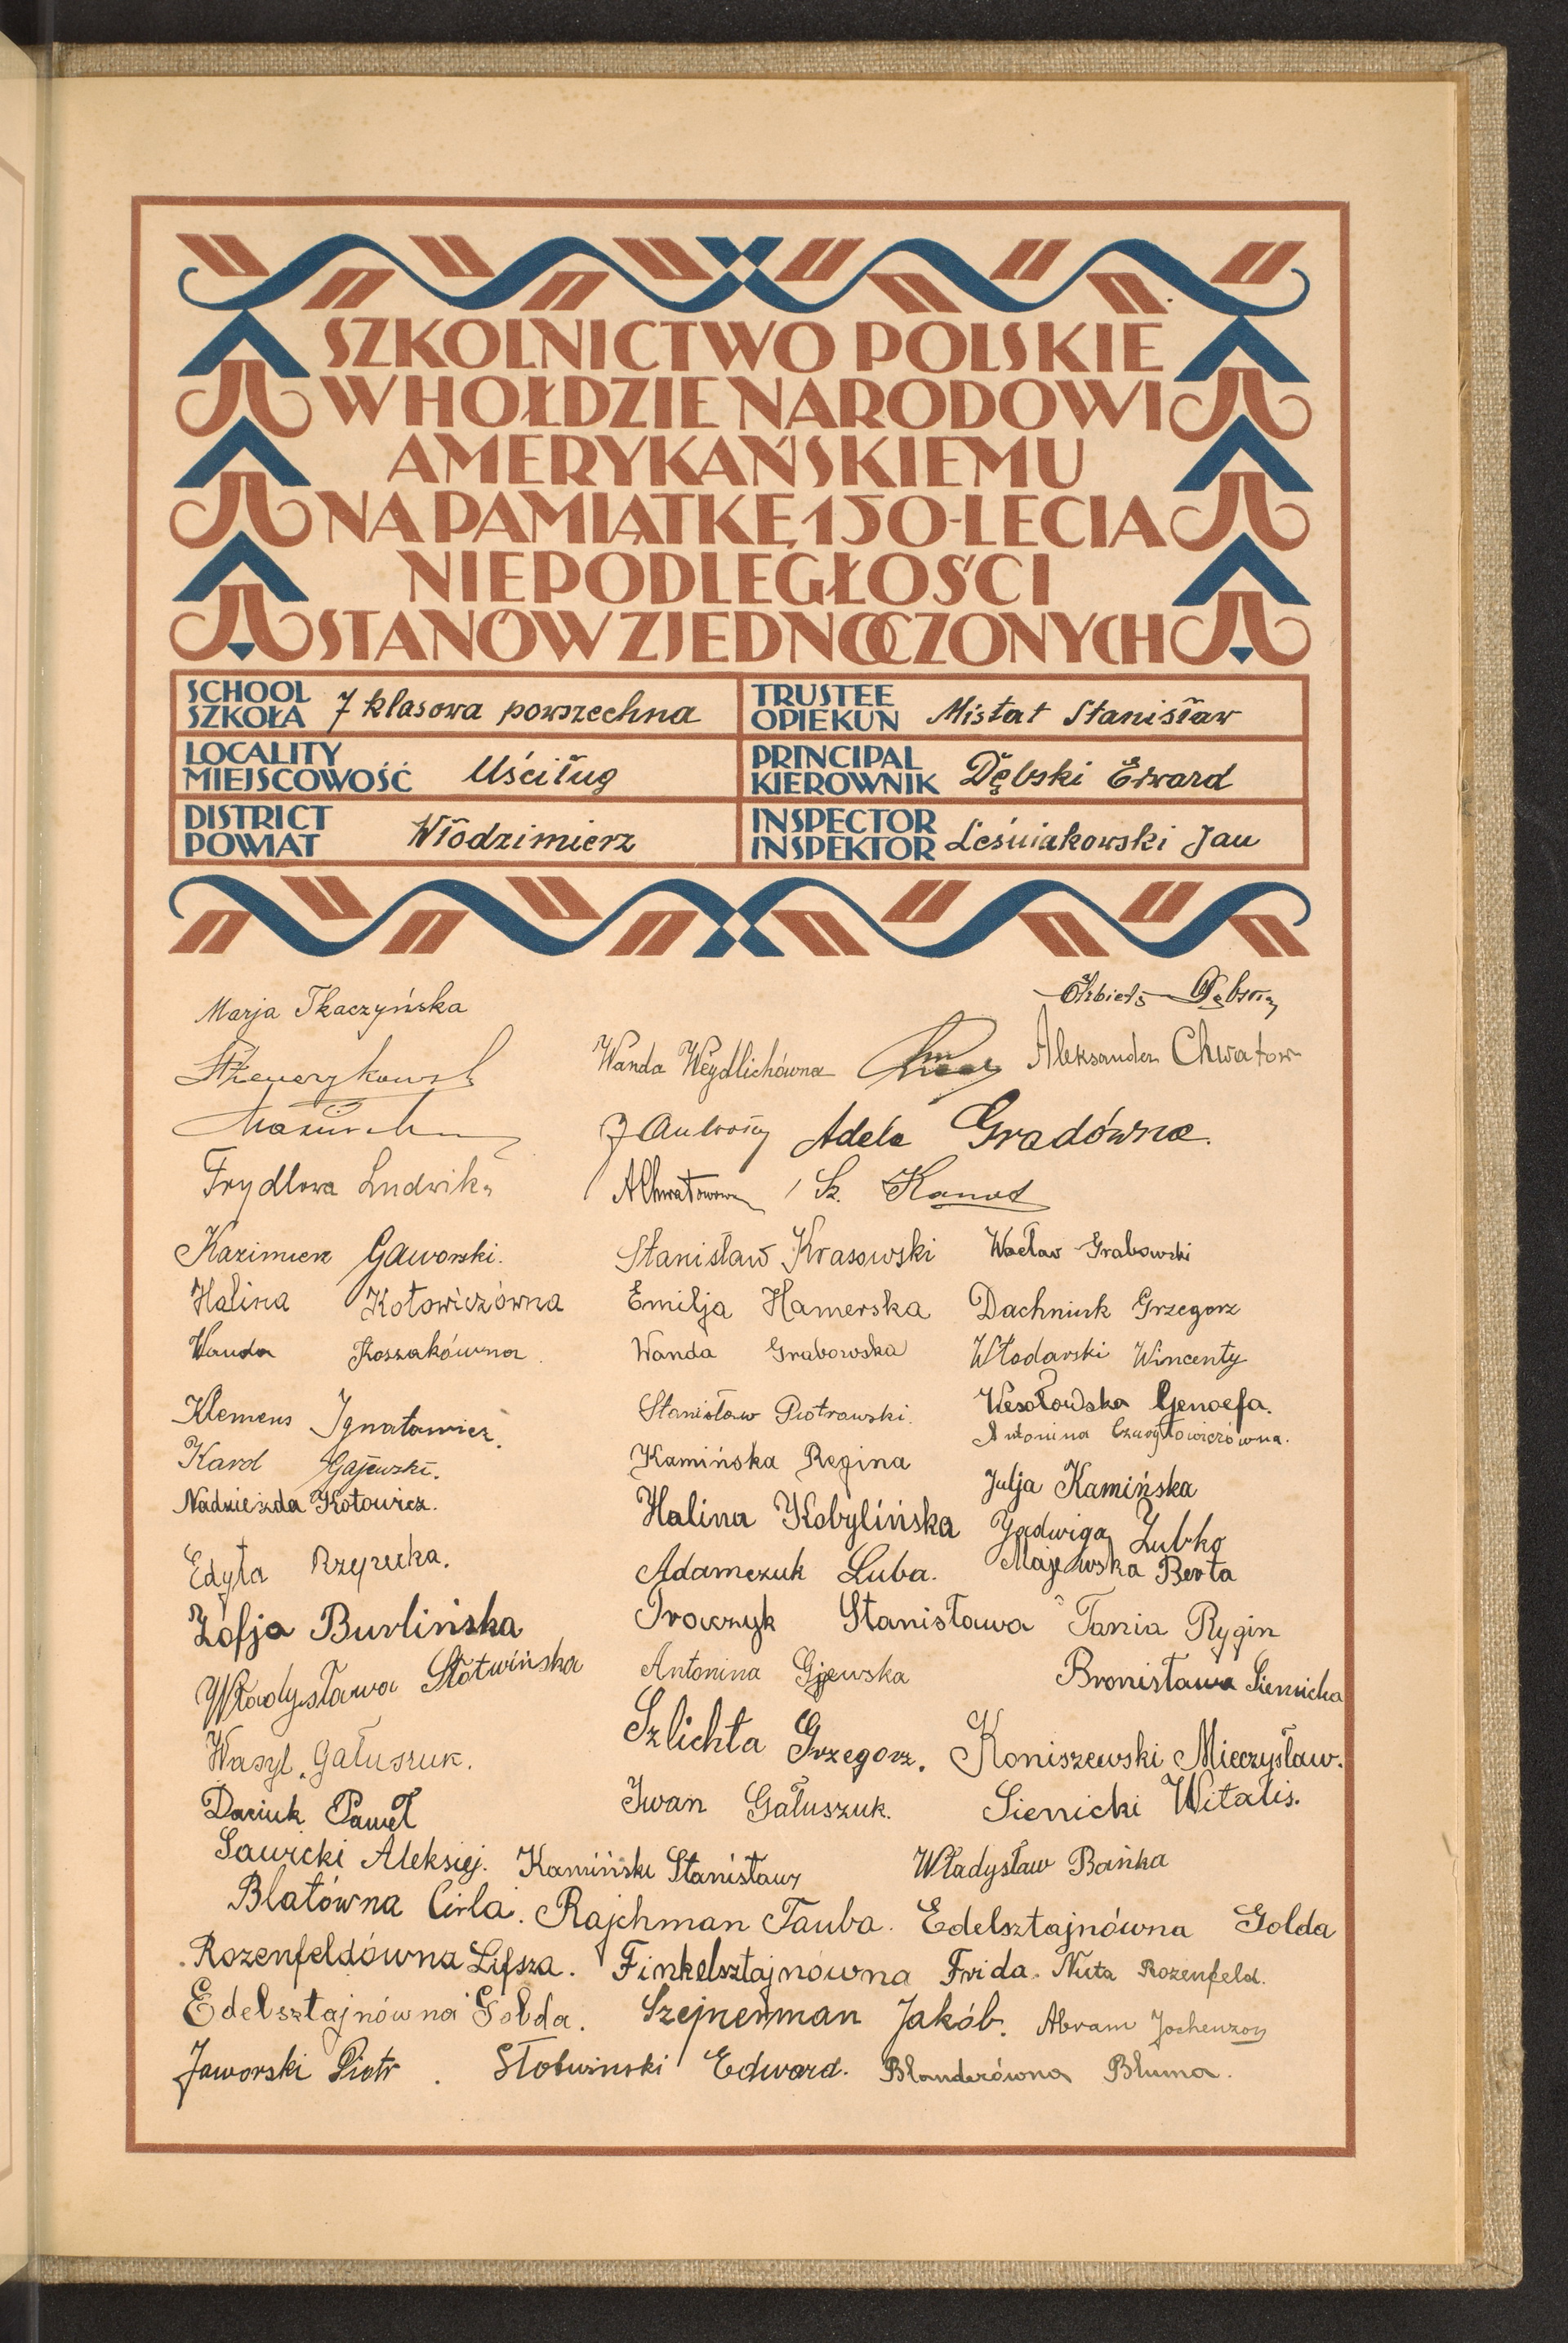 SZKOLNICTWO POLSKIE
W HOŁDZIE NARODOWI
AMERYKAŃSKIEMU
NA PAMIĄTKĘ 150-LECIA
NIEPODLEGŁOŚCI
STANÓW ZJEDNOCZONYCH
SCHOOL
SZKOŁA 7 klasowa powszechna
TRUSTEE
OPIEKUN Mistat Stanisław
LOCALITY
MIEJSCOWOŚĆ Uściług
PRINCIPAL
KIEROWNIK Dębski Edward
DISTRICT
POWIAT Włodzimierz
INSPECTOR
INSPEKTOR Leśniakowski Jan
Marja Tkaczyńska
Wanda Weydlichówna Aleksander Chwatow
Adela Gradówna.
Frydlowa Ludwika
AChwatowowa Sz. Kanat
Kazimierz Gaworski. Stanisław Krasowski Wacław Grabowski
Halina Kotowiczówna Emilja Hamerska Dachniuk Grzegorz
Wanda Koszakówna Wanda Grabowska Włodarski Wincenty
Klemens Ignatowicz. Stanisław Piotrowski. Wesołowska Genoefa.
Antonina
Karol Gajewski. Kamińska Regina Julja Kamińska
Nadzieżda Kotowicz. Halina Kobylińska Jadwiga Zubko
Edyta Rzepecka. Adamczuk Luba. Majewska Berta
Zofja Burlińska Stanisława Tania Rygin
Władysława Słotwińska Antonina Gjewska Bronisława Sienicka
Wasyl Gałuszuk. Szlichta Grzegorz. Koniszewski Mieczysław.
Daciuk Paweł Iwan Gałuszuk. Sienicki Witalis.
Sawicki Aleksiej. Kamiński Stanisław Władysław Bańka
Blatówna Cirla. Rajchman Tauba. Edelsztajnówna Golda
Rozenfeldówna Lifsza. Finkelsztajnówna Frida. Nuta Rozenfeld.
Edelsztajnówna Golda. Szejnerman Jakób. Abram Jochenzon
Jaworski Piotr. Słotwinski Edward. Blanderówna Bluma.